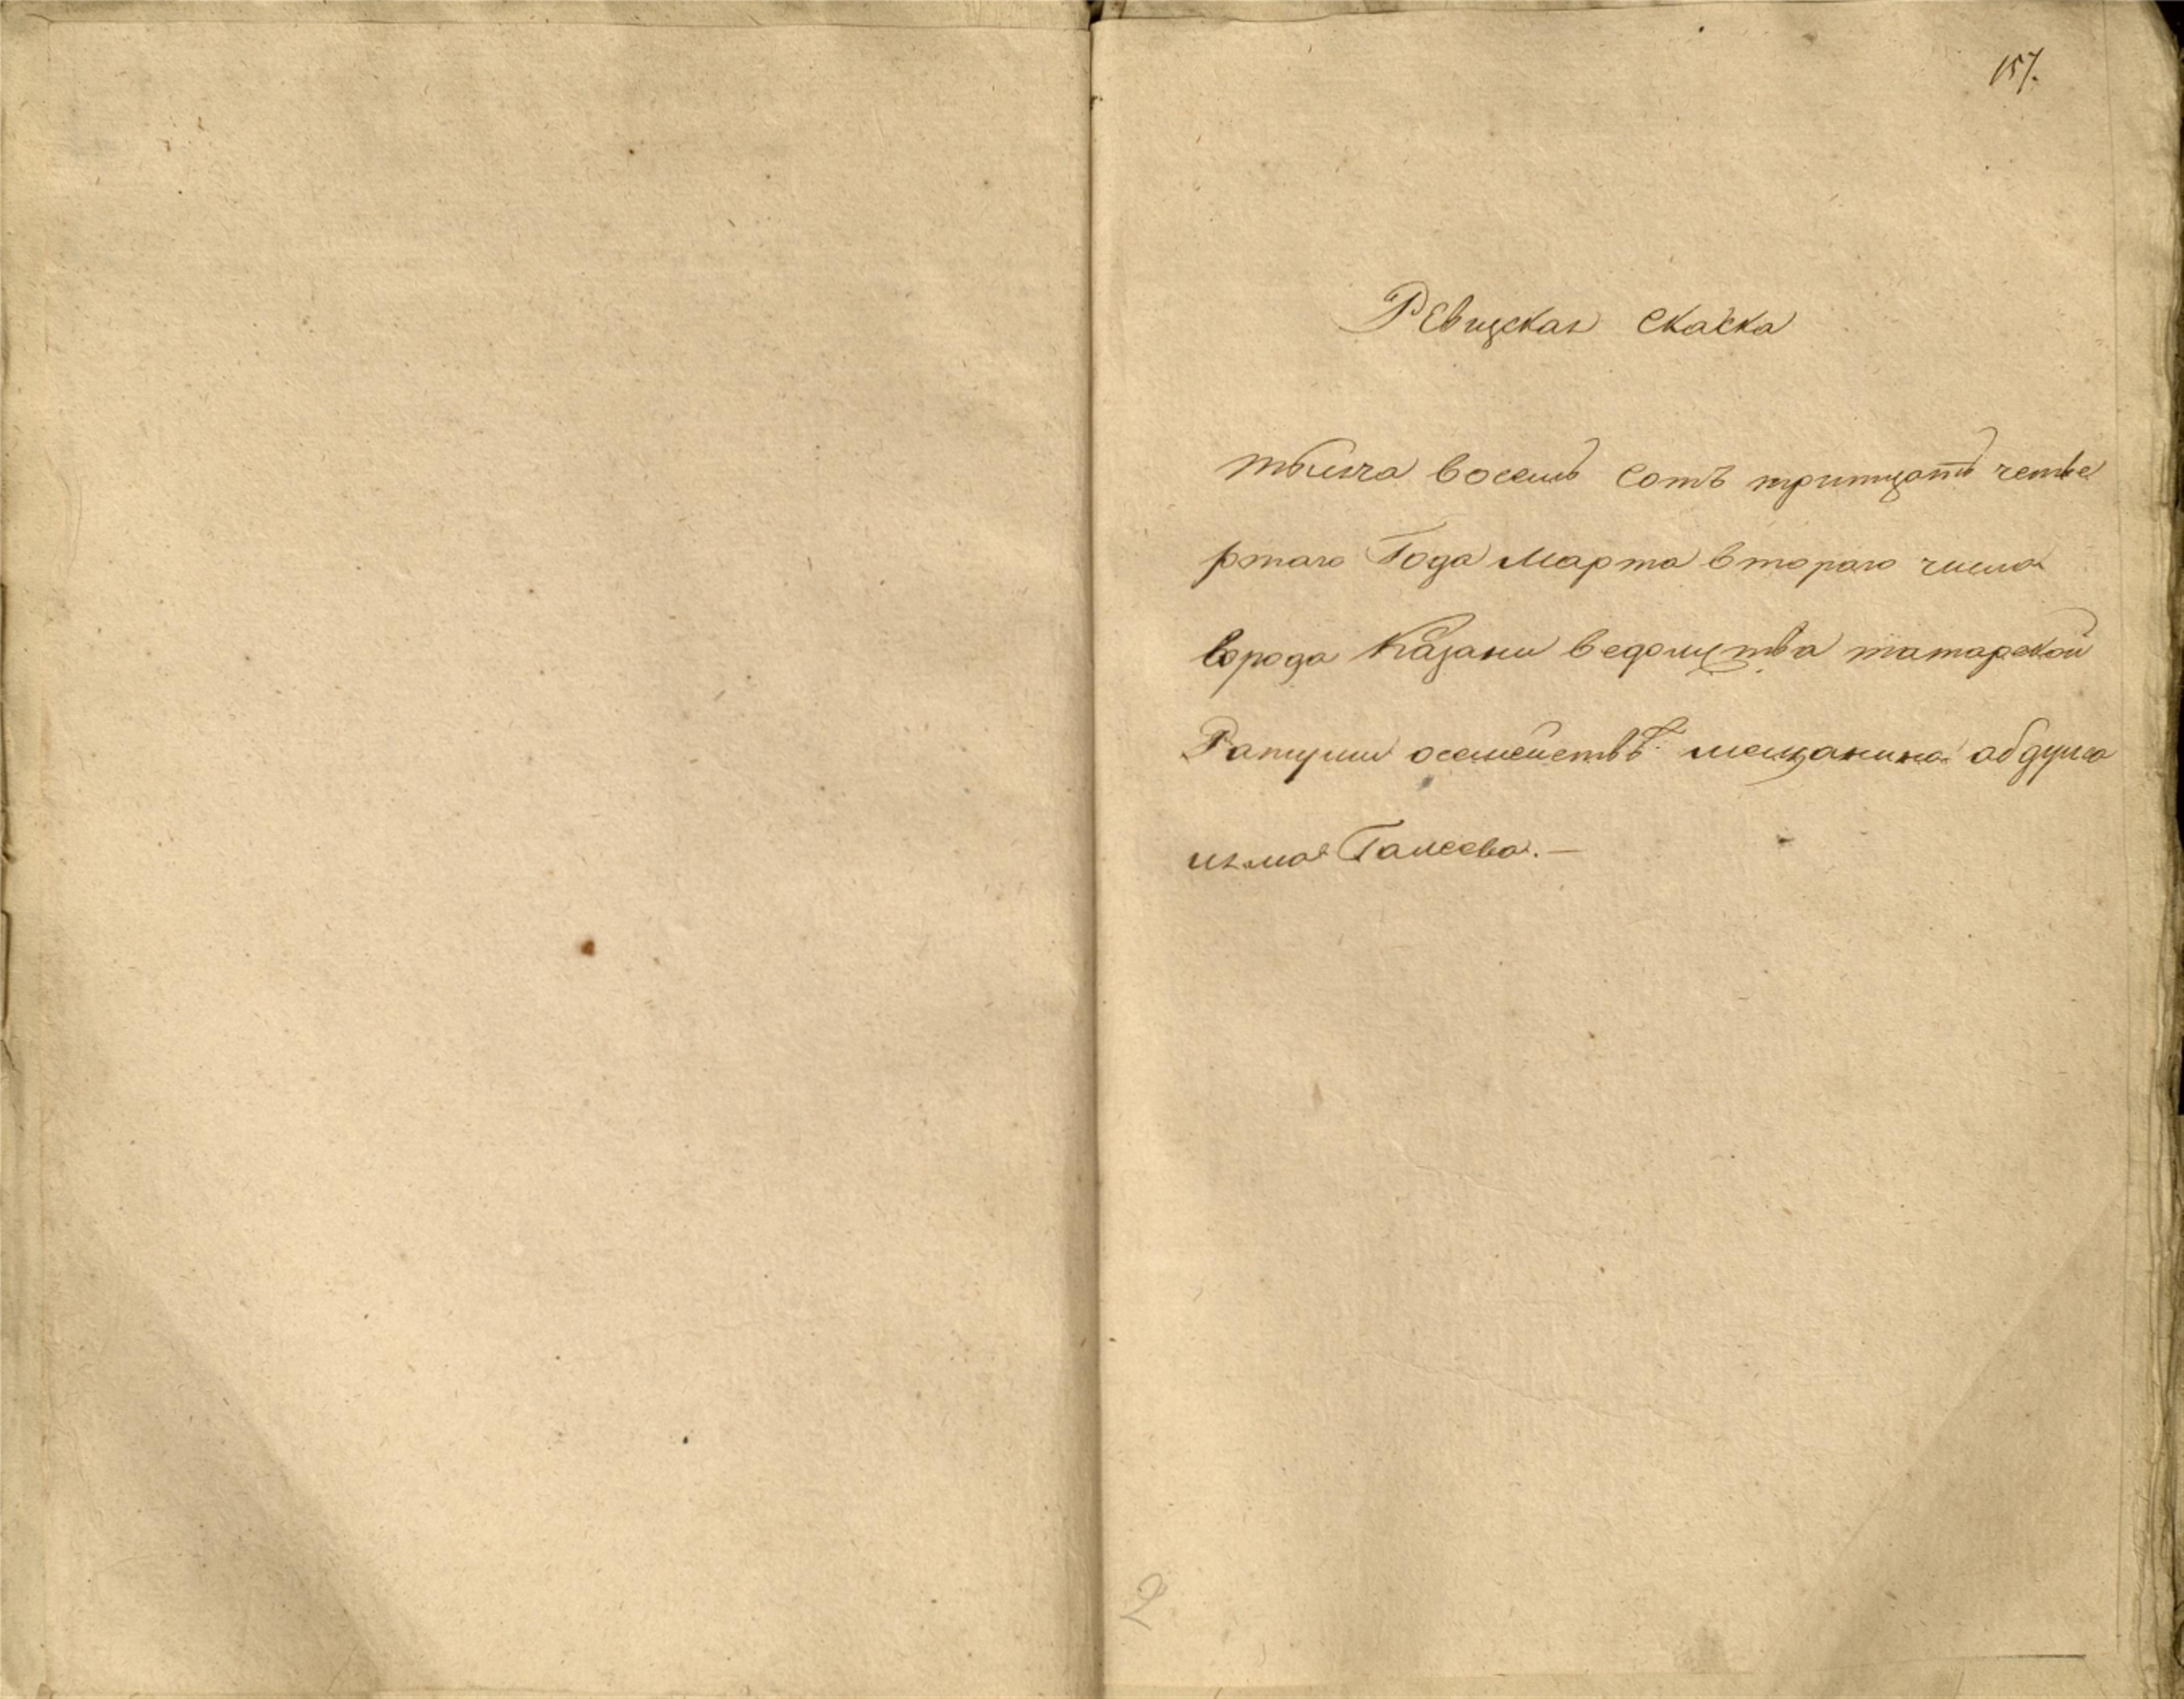 157.
Ревиская Скаска
тысеча восемь Сотъ тритцать четве
ртаго Года Марта втораго числа
города Казани ведомства татарской
Ратуши осемействе мещанина абдула
Галеева. —
2